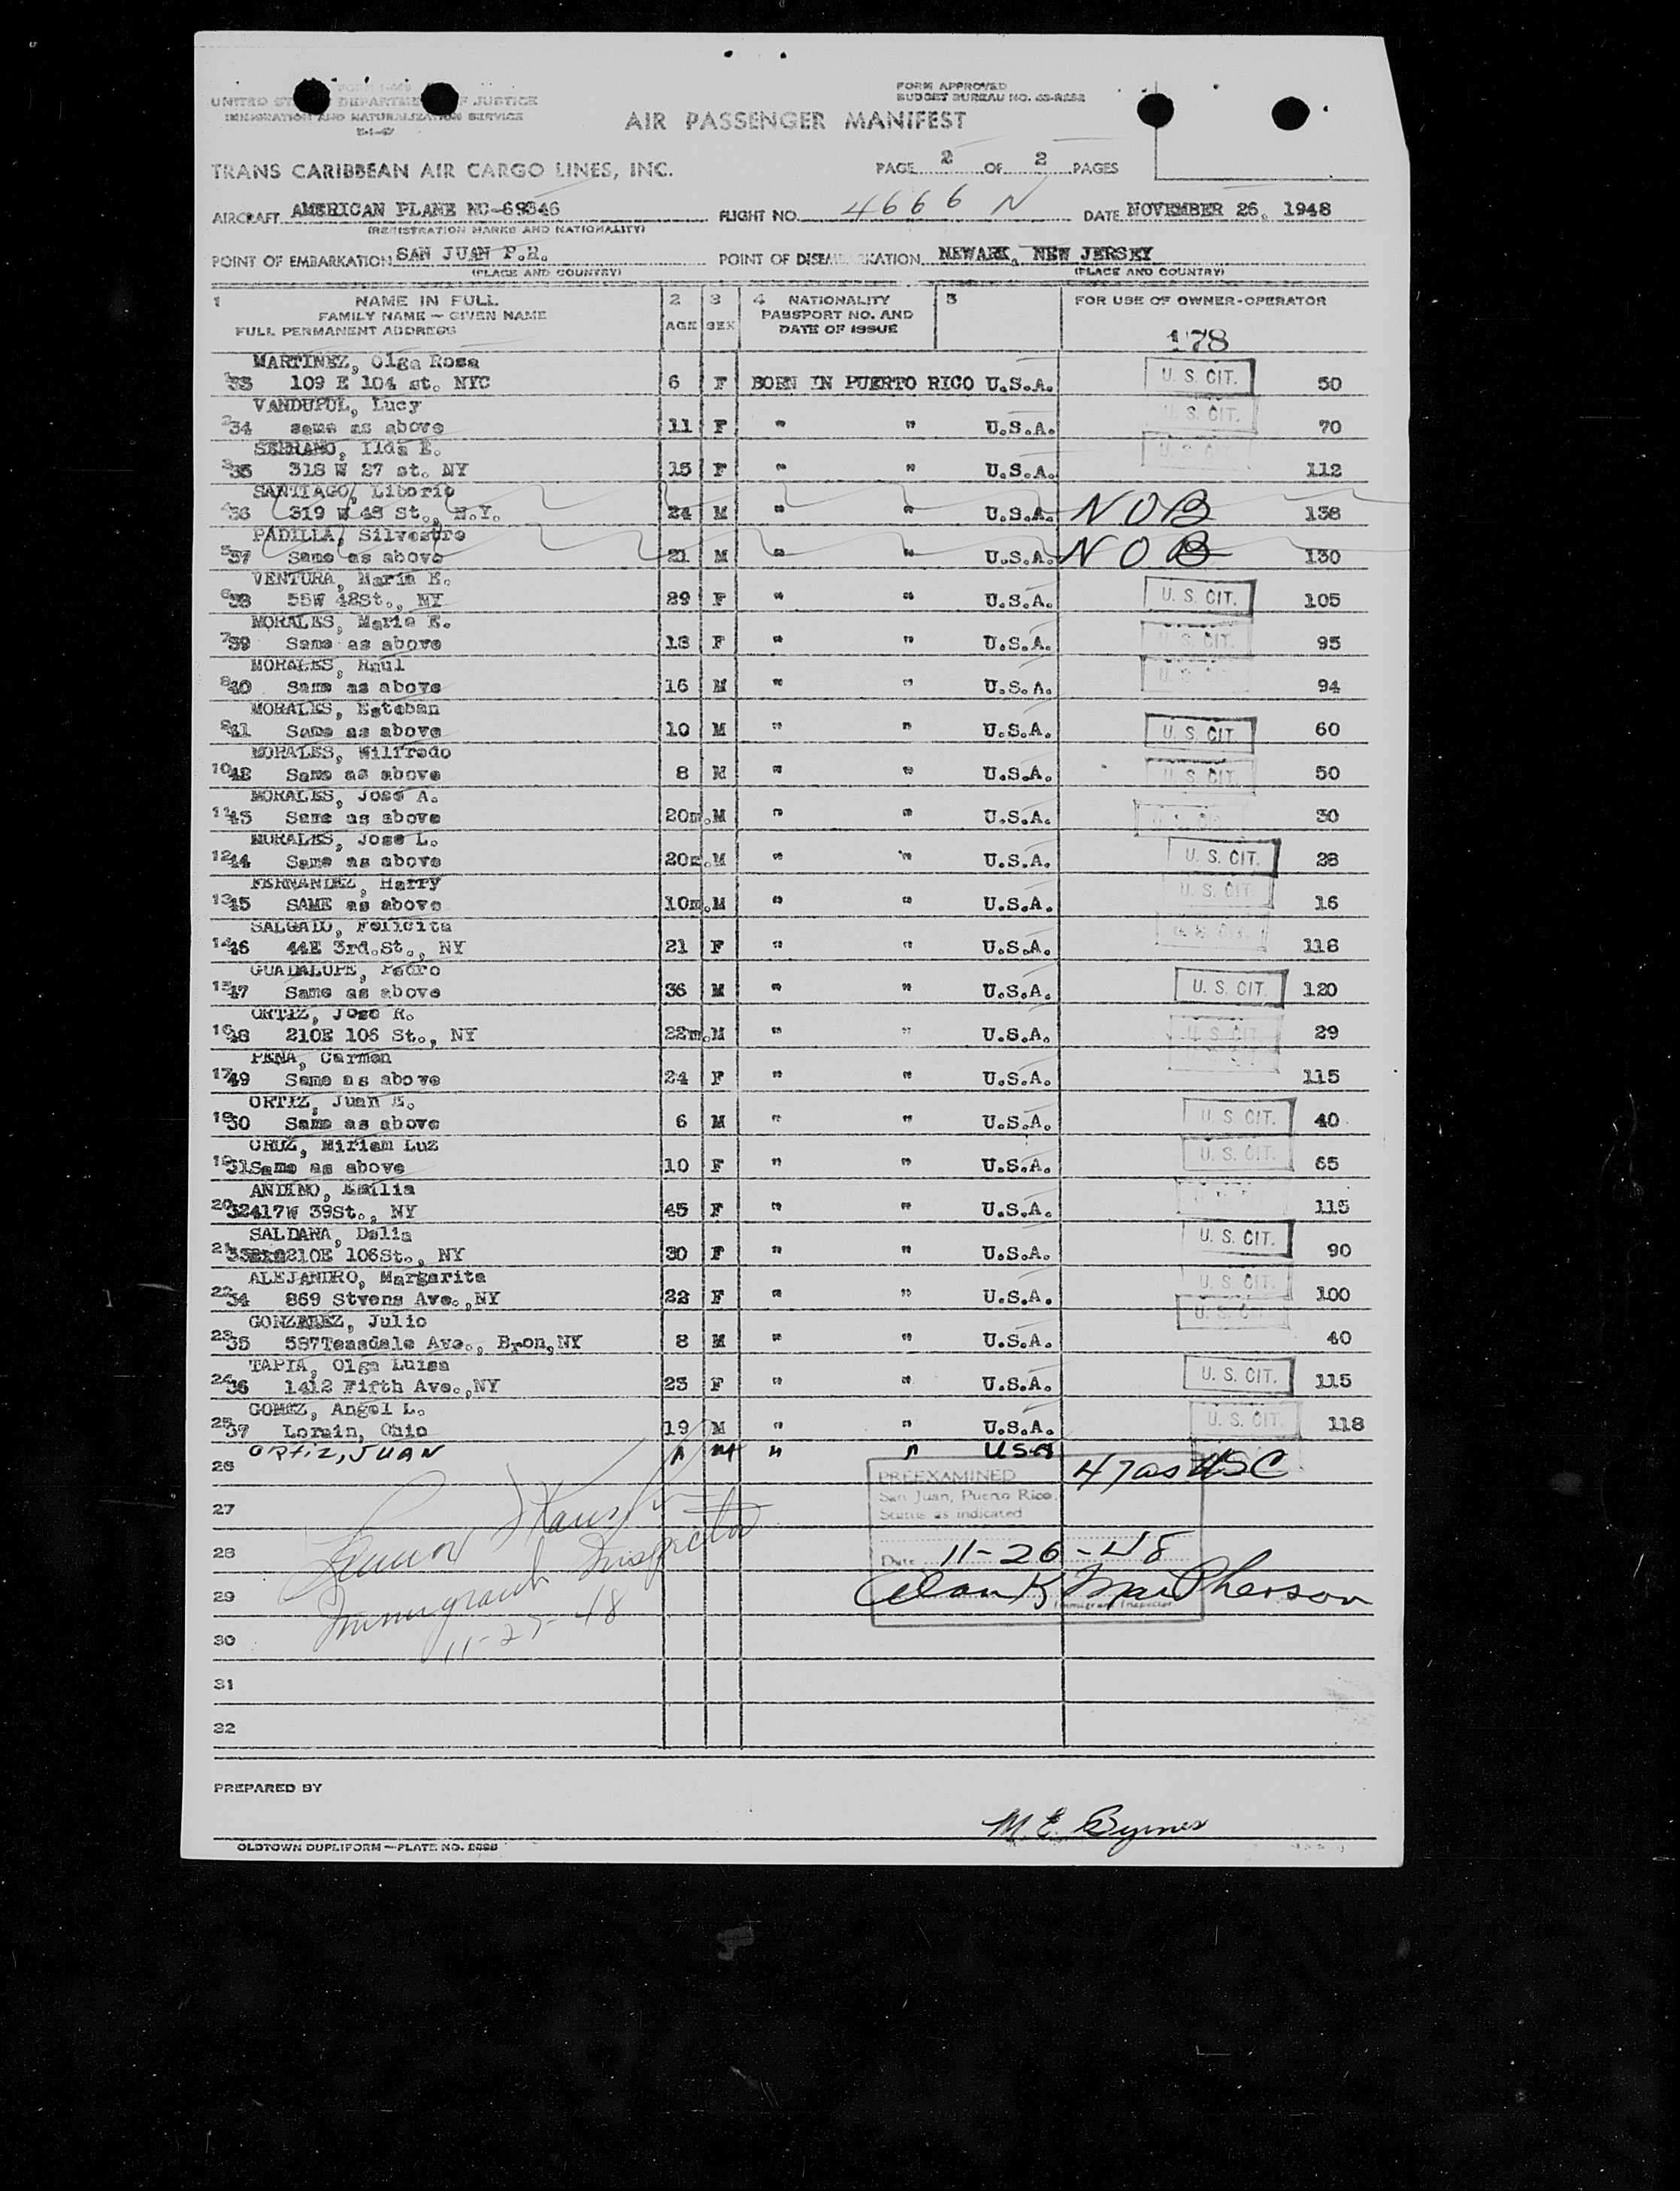 FORM I-466
UNITED STATES DEPARTMENT OF JUSTICE
IMMIGRATION AND NATURALIZATION SERVICE
FORM APPROVED
BUDGET BUREAU NO.
AIR PASSENGER MANIFEST
TRANS CARIBBEAN AIR CARGO LINES, INC.
PAGE 2 OF 2 PAGES
AIRCRAFT AMERICAN PLANE NC-69346 FLIGHT NO. 4666 N DATE NOVEMBER 26, 1948
(REGISTRATION MARKS AND NATIONALITY)
POINT OF EMBARKATION SAN JUAN P.R. POINT OF DISEM KATION NEWARK, NEW JERSEY
(PLACE AND COUNTRY) (PLACE AND COUNTRY)
1 NAME IN FULL 2 3 4 NATIONALITY 5 FOR USE OF OWNER-OPERATOR
FAMILY NAME - GIVEN NAME AGE SEX PASSPORT NO. AND
FULL PERMANENT ADDRESS DATE OF ISSUE
178
MARTINEZ, Olga Rosa
1 33 109 E 104 st. NYC 6 F BORN IN PUERTO RICO U.S.A. U. S. CIT. 50
VANDUPUL, Lucy
2 34 same as above 11 F " " U.S.A. U. S. CIT. 70
SERRANO, Ilda E.
3 35 318 W 27 st. NY 15 F " " U.S.A. U. S. CIT. 112
SANTIAGO, Liborio
4 36 319 W 48 St., N.Y. 24 M " " U.S.A. NOB 138
PADILLA, Silvestre
5 37 Same as above 21 M " " U.S.A. NOB 130
VENTURA, Maria E.
6 38 55W 48St., NY 29 F " " U.S.A. U. S. CIT. 105
MORALES, Maria E.
7 39 Same as above 18 F " " U.S.A. U. S. CIT. 95
MORALES, Raul
8 40 Same as above 16 M " " U.S.A. U. S. 94
MORALES, Esteban
9 41 Same as above 10 M " " U.S.A. U. S. CIT 60
MORALES, Wilfredo
10 42 Same as above 8 M " " U.S.A. U. S. CIT. 50
MORALES, Jose A.
11 43 Same as above 20m.M " " U.S.A. 30
MORALES, Jose L.
12 44 Same as above 20m.M " " U.S.A. U. S. CIT. 28
FERNANDEZ, Harry
13 45 SAME as above 10m.M " " U.S.A. U. S. CIT. 16
SALGADO, Felicita
14 46 44E 3rd.St., NY 21 F " " U.S.A. 118
GUADALUPE, Pedro
15 47 Same as above 36 M " " U.S.A. U. S. CIT. 120
ORTIZ, Jose R.
16 48 210E 106 St., NY 22m.M " " U.S.A. U. S. CIT. 29
PENA, Carmen
17 49 Same as above 24 F " " U.S.A. 115
ORTIZ, Juan E.
18 50 Same as above 6 M " " U.S.A. U. S. CIT. 40
CRUZ, Miriam Luz
19 51Same as above 10 F " " U.S.A. U. S. CIT. 65
ANDINO, Emilia
20 52417W 39St., NY 45 F " " U.S.A. 115
SALDANA, Delia
21 53 210E 106St., NY 30 F " " U.S.A. U. S. CIT. 90
ALEJANDRO, Margarita
22 54 869 Stvens Ave.,NY 22 F " " U.S.A. U. S. CIT. 100
GONZALEZ, Julio
23 55 587Teasdale Ave., Bron,NY 8 M " " U.S.A. U. S. 40
TAPIA, Olga Luisa
24 56 1412 Fifth Ave.,NY 23 F " " U.S.A. U. S. CIT. 115
GOMEZ, Angel L.
25 57 Lorain, Ohio 19 M " " U.S.A. U. S. CIT. 118
ORTIZ, JUAN A M " " USA
26 47 as USC
PREEXAMINED
San Juan, Puerto Rico
Status as indicated
27
28
Date 11-26-48
Immigrant Inspector
29 Alan K MacPherson
Immigrant Inspector
11-27-48
30
31
32
PREPARED BY
M. E. Byrnes
OLDTOWN DUPLIFORM-PLATE NO.